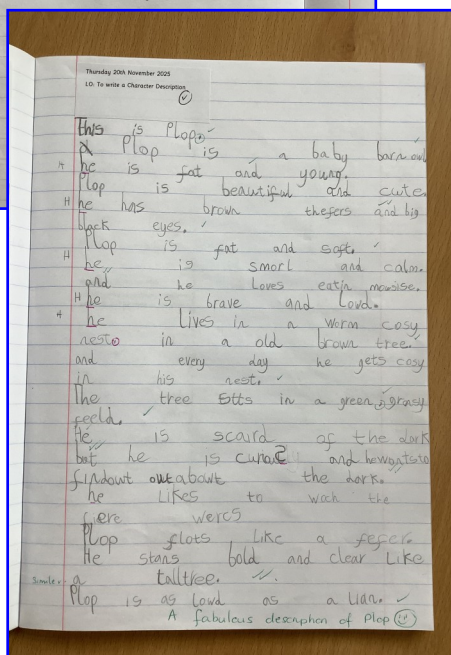 Thursday 20th November 2025
LO: To write a Character Description
This is Plop.
Plop is a baby barn owl
H he is fat and young.
Plop is beautiful and cute.
H he has brown thefers and big
black eyes.
Plop is fat and soft.
H he is smort and calm.
and he loves eatin mowsise.
H he is brave and Loud.
H he lives in a worm cosy
nest. in a old brown tree.
and every day he gets cosy
in his nest.
The tree sits in a green grasy
feeld.
He is scard of the dark
bat he is and he wonts to
findowt out abowt the dark.
he Likes to woch the
fiere wercs
Plop flots Like a fefer.
He stans bold and clear Like
Simile a talltree.
Plop is as Lowd as a lian.
A fabulous description of Plop